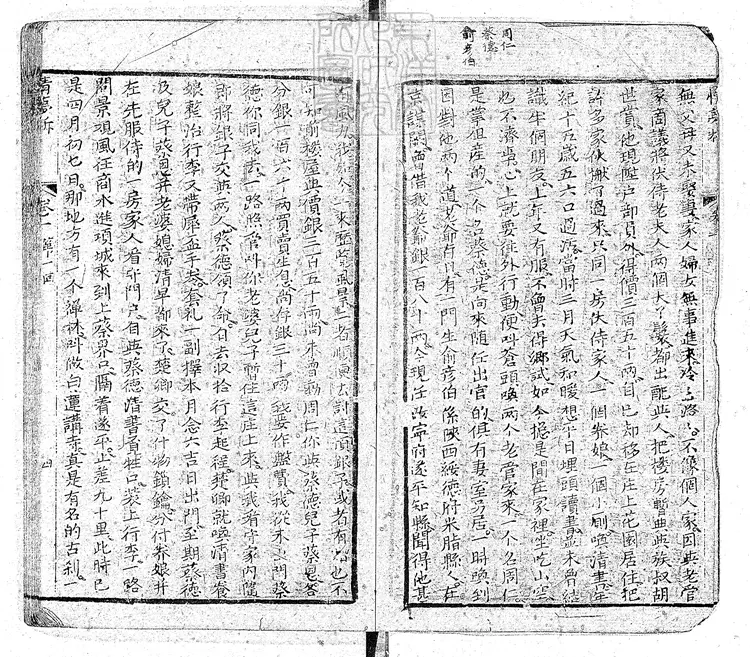 周仁
蔡德
俞彥伯
無父母又未娶妻家人婦女無事進來冷冷落落不像個人家因與老管
家商議將伏侍老夫人兩個大丫鬟都出配與人把樓房暫典與族叔胡
世賞他現陞戶部員外得價三百五十兩自己却移在庄上花園居住把
許多家伙搬了過來只同一房伏侍家人一個養娘一個小厮喚清書年
紀十五歲五六口過活當時三月天氣和暖想平日埋頭讀書並未曾結
識半個朋友上年又有服不曾去得鄉試如今總是閒在家裡坐吃山空
也不濟事心上就要往外行動便叫蒼頭喚兩個老管家來一個名周仁
是掌租產的一個名蔡德是向來隨任出官的俱有妻室另居一時喚到
因對他兩個道老爺在日只有一門生俞彥伯係陝西綏德府米脂縣人在
京謀選借我老爺銀一百八十兩今現任汝寧府遂平知縣聞得他甚
來歷覽風景二者順便去討這項銀子或者有也不
可知前樓屋典價銀三百五十兩尚未曾動周仁你與蔡德兒子蔡恩各
分銀一百六十兩買賣生息尚存銀三十兩我要作盤費我從未出門蔡
德你同我去一路照管叫你老婆兒子暫住這庄上來與我看守家內隨
即將銀子交與兩人蔡德領了命自去收拾行李起程楚卿就喚清書養
娘整治行李又帶犀盃手卷套礼一副擇本月念六吉日出門至期蔡德
汲兒子蔡恩并老婆媳婦清早都來了楚卿交了什物鎖鑰分付養娘并
左先服侍的一房家人看守門戶自與蔡德清書負牲口裝上行李一路
問景項風往商水進項城來到上蔡界口隔着遂平止差九十里此時已
是四月初七日那地方有一個禪林叫做白蓮講寺真是有名的古刹
情夢柝
卷一
第十一回
四